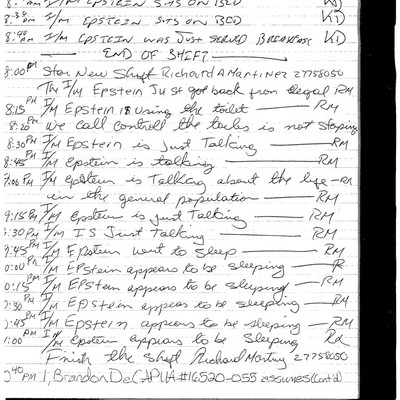 8:30 AM I/M EPSTEIN SITS ON BED KD
8:40 AM I/M EPSTEIN WAS JUST SERVED BREAKFAST KD
END OF SHIFT
8:00 PM Star New Shift Richard A Martinez 27758050
The I/M Epstein Just got back from legal RM
8:15 PM I/M Epstein is using the toilet RM
8:20 PM We call controll the toilet is not stoping
8:30 PM I/M Epstein is Just Talking RM
8:45 PM I/M Epstein is talking RM
9:00 PM I/M epstein is Talking about the life RM
in the general population RM
9:15 PM I/M Epstein is just Talking RM
:30 PM I/M IS Just talking RM
9:45 PM I/M Epstein went to sleep RM
0:00 PM I/M EPStein appears to be sleeping R
0:15 PM I/M EPStein appears to be sleeping RM
0:30 PM I/M EPStein appears to be sleeping RM
0:45 PM I/M Epstein appears to be sleeping RM
1:00 PM I/M Epstein appears to be sleeping
Finish the Shift Richard Martinez 27758050
:40 PM I, Brandon DeCAPUA #16520-055 assumes (Cont'd)